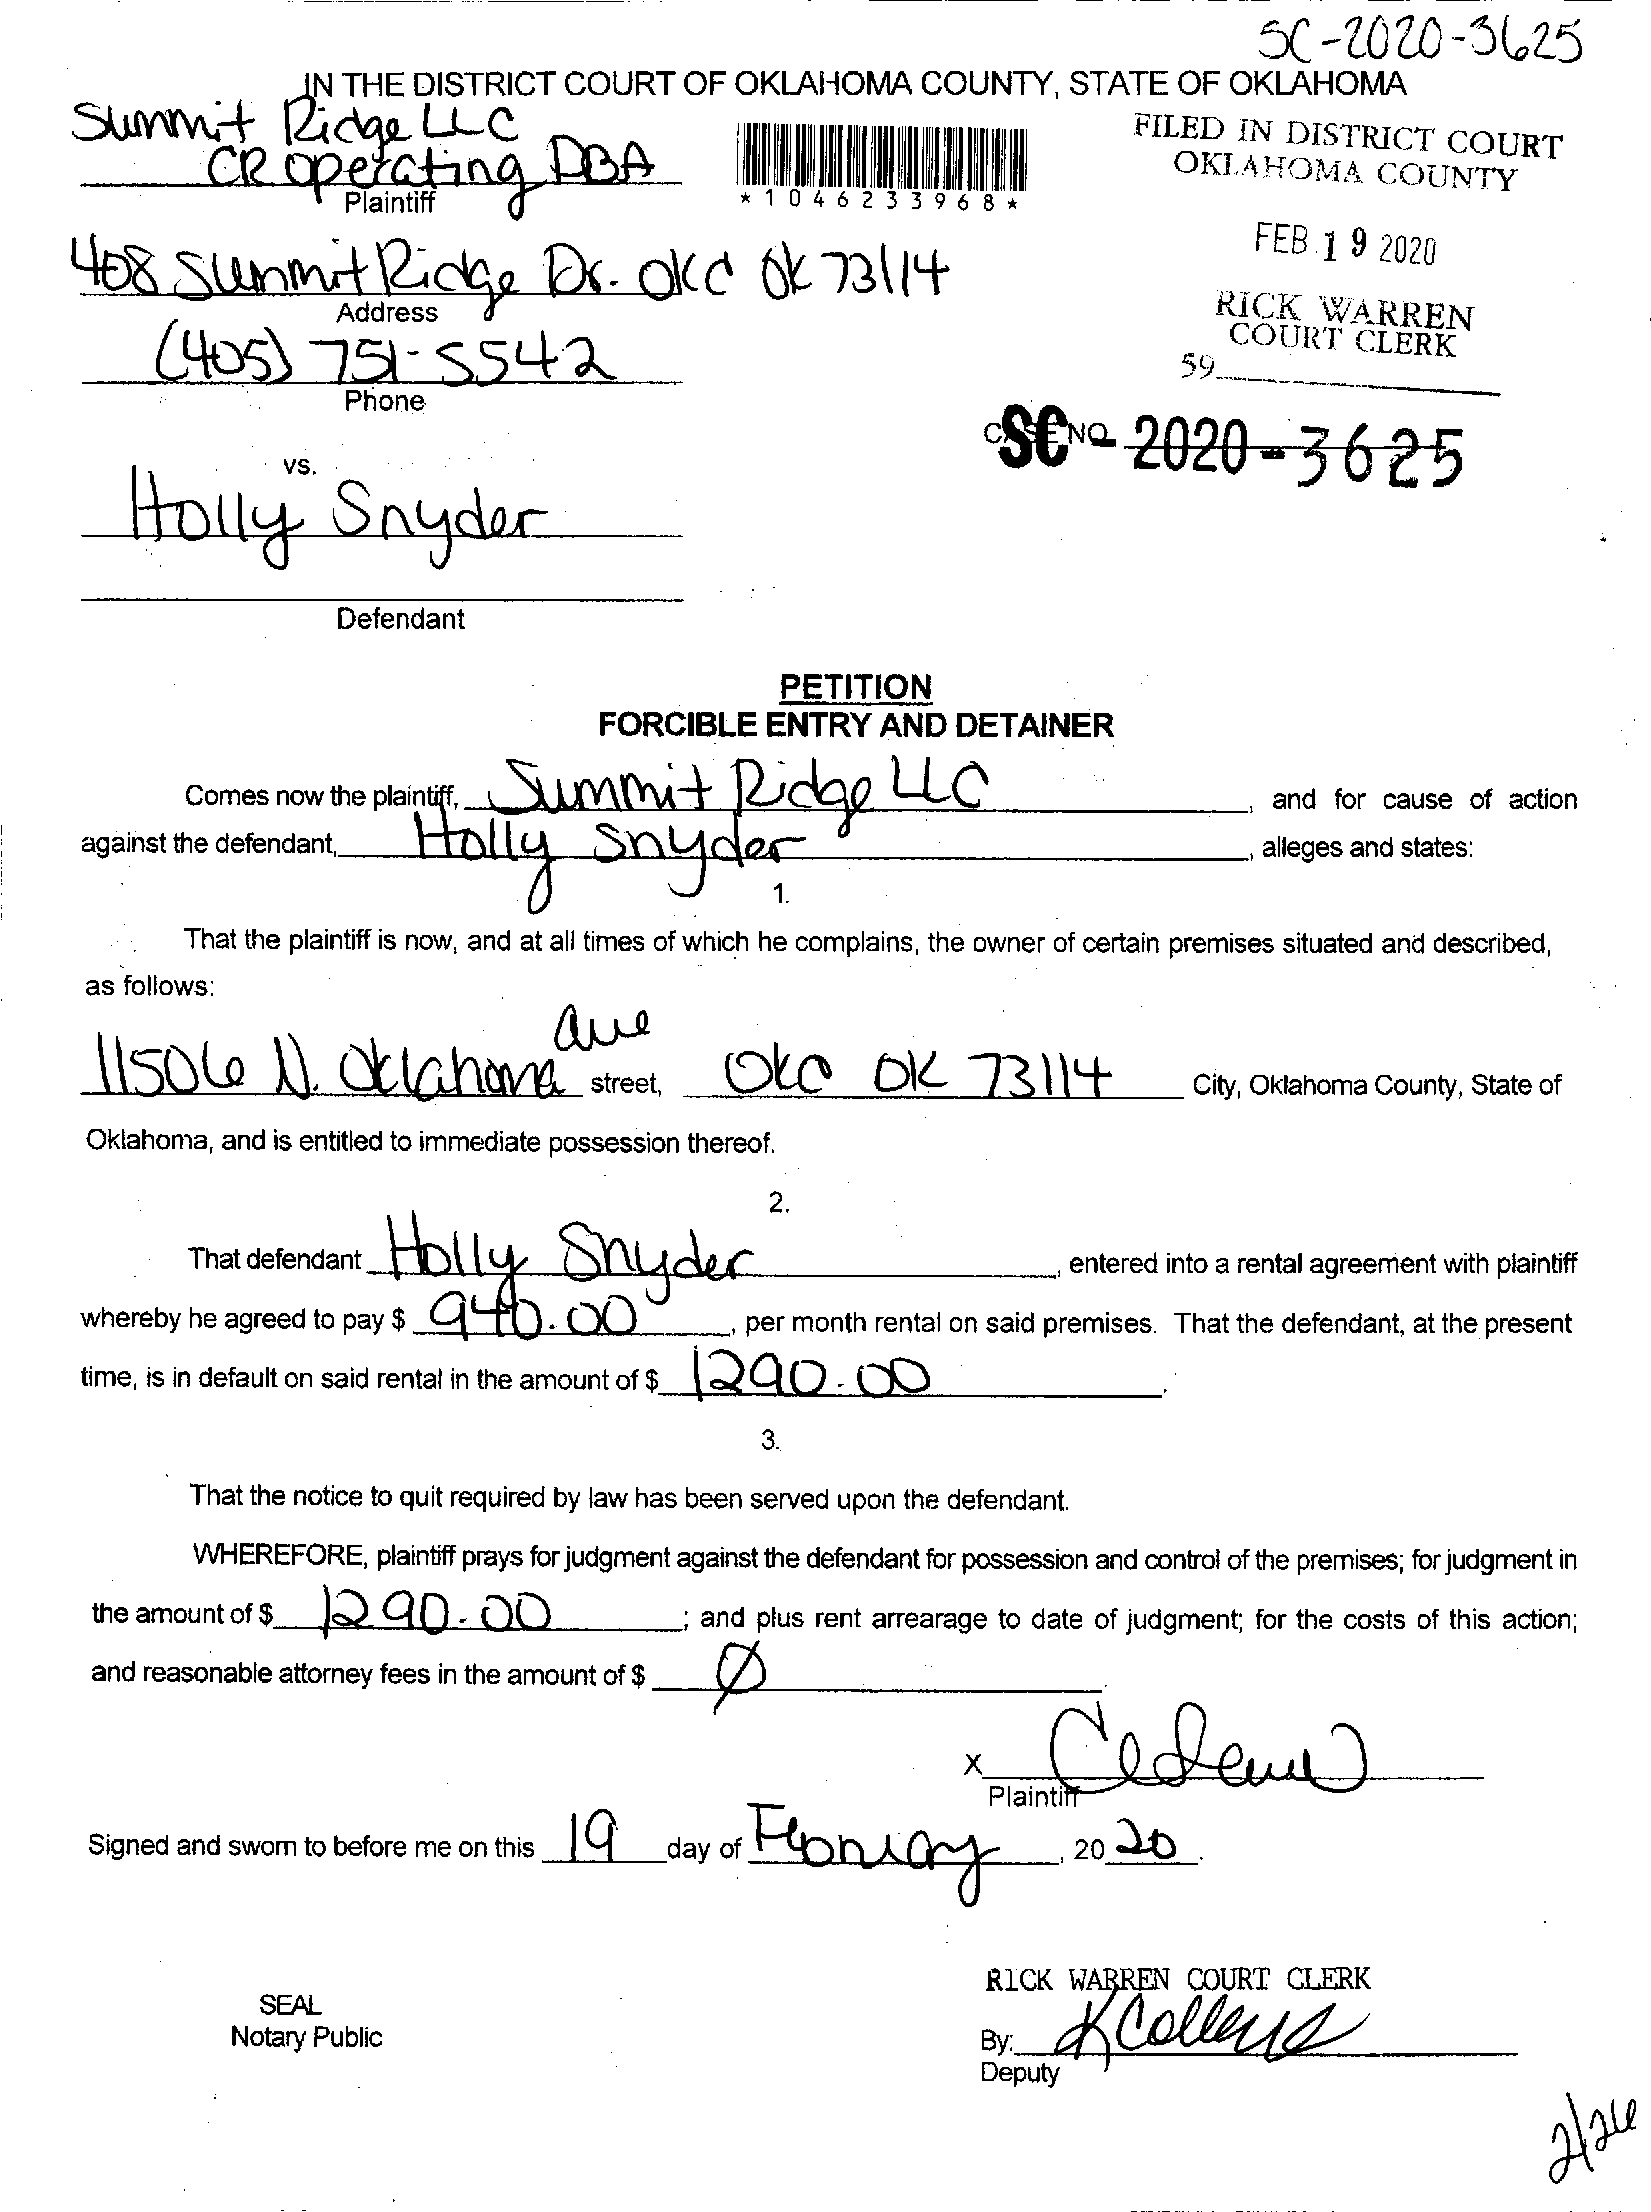 SC-2020-3625
IN THE DISTRICT COURT OF OKLAHOMA COUNTY, STATE OF OKLAHOMA
Summit Ridge LLC
CR Operating DBA
Plaintiff
*1046233968*
FILED IN DISTRICT COURT
OKLAHOMA COUNTY
FEB 19 2020
RICK WARREN
COURT CLERK
59
408 Summit Ridge Dr. OKC OK 73114
Address
(405) 751-5542
Phone
CASE NO.
SC - 2020 - 3625
vs.
Holly Snyder
Defendant
PETITION
FORCIBLE ENTRY AND DETAINER
Comes now the plaintiff, Summit Ridge LLC, and for cause of action
against the defendant, Holly Snyder, alleges and states:
1.
That the plaintiff is now, and at all times of which he complains, the owner of certain premises situated and described,
as follows:
11506 N. Oklahoma ave street, OKC OK 73114 City, Oklahoma County, State of
Oklahoma, and is entitled to immediate possession thereof.
2.
That defendant Holly Snyder, entered into a rental agreement with plaintiff
whereby he agreed to pay $ 940.00, per month rental on said premises. That the defendant, at the present
time, is in default on said rental in the amount of $ 1290.00.
3.
That the notice to quit required by law has been served upon the defendant.
WHEREFORE, plaintiff prays for judgment against the defendant for possession and control of the premises; for judgment in
the amount of $ 1290.00; and plus rent arrearage to date of judgment; for the costs of this action;
and reasonable attorney fees in the amount of $ Ø
X
Plaintiff
Signed and sworn to before me on this 19 day of February, 20 20.
RICK WARREN COURT CLERK
SEAL
Notary Public
By: K Collens
Deputy
2/26